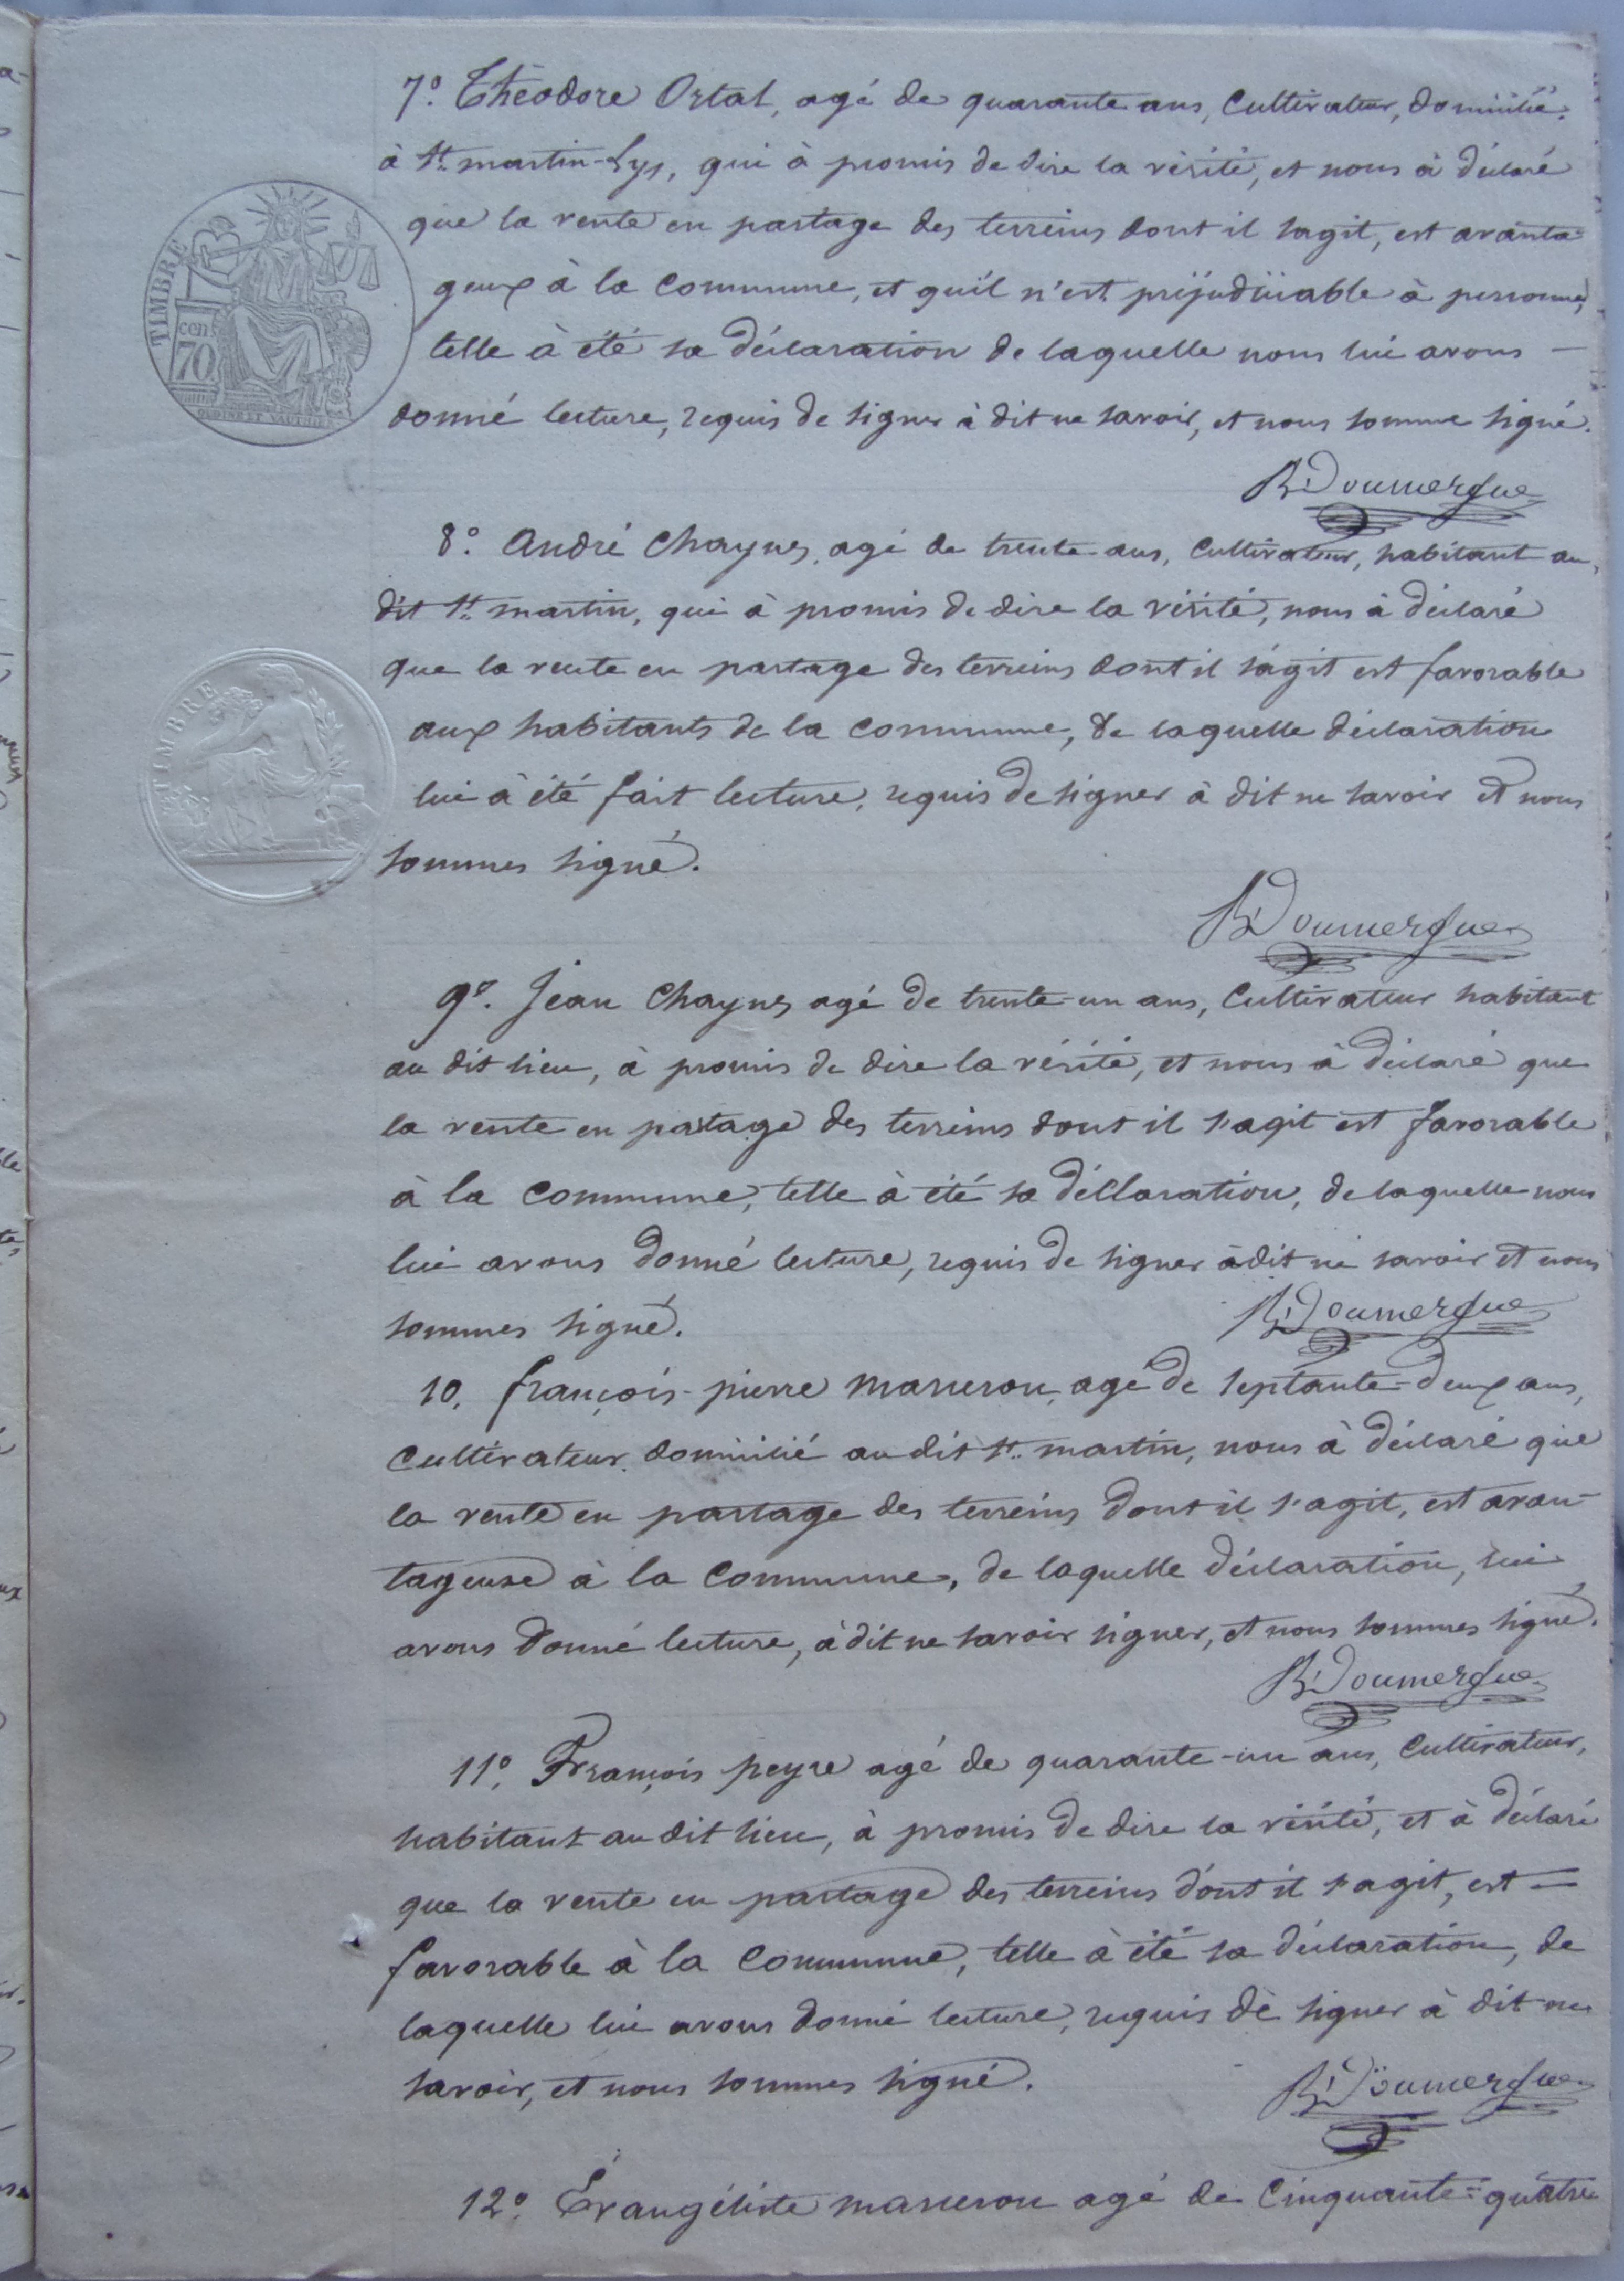 7.° Théodore Ortal, agé de quarante ans, Cultivateur, domicilié.
à St. martin-Lys, qui à promis de dire la vérité, et nous à déclaré
que la vente en partage des terreins dont il sagit, est avanta-
geux à la Commune, et qu'il n'est préjudiciable à personne,
telle à été sa déclaration de laquelle nous lui avons —
donné lecture, requis de signer à dit ne savoir, et nous somme signé.
TIMBRE
70 cen
OUDINE ET VAUTHIER
R Doumergue
8.° André Chaynes, agé de trente ans, Cultivateur, habitant au,
dit St. martin, qui à promis de dire la vérité, nous à déclaré
que la vente en partage des terreins dont il s'agit est favorable
aux habitants de la Commune, de laquelle déclaration
lui à été fait lecture, requis de signer à dit ne savoir et nous
sommes signé.
TIMBRE
R Doumergue
9.° Jean Chaynes agé de trente-un ans, Cultivateur habitant
au dit lieu, à promis de dire la vérité, et nous à déclaré que
la vente en partage des terreins dont il s'agit est favorable
à la Commune, telle à été sa déclaration, de laquelle nous
lui avons donné lecture, requis de signer à dit ne savoir et nous
sommes signé.
R Doumergue
10. françois-pierre marceron, agé de septante-deux ans,
Cultivateur domicilié au dit St. martin, nous à déclaré que
la vente en partage des terreins dont il s'agit, est avan-
tageuse à la Commune, de laquelle déclaration, lui
avons donné lecture, à dit ne savoir signer, et nous sommes signé.
R Doumergue
11.° François peyre agé de quarante-un ans, Cultivateur,
habitant au dit lieu, à promis de dire la vérité, et à déclaré
que la vente en partage des terreins dont il s'agit, est =
favorable à la Commune, telle à été sa déclaration, de
laquelle lui avons donné lecture, requis de signer à dit ne
savoir, et nous sommes signé.
R Doumergue
12.° Évangéliste marceron agé de Cinquante=quatre